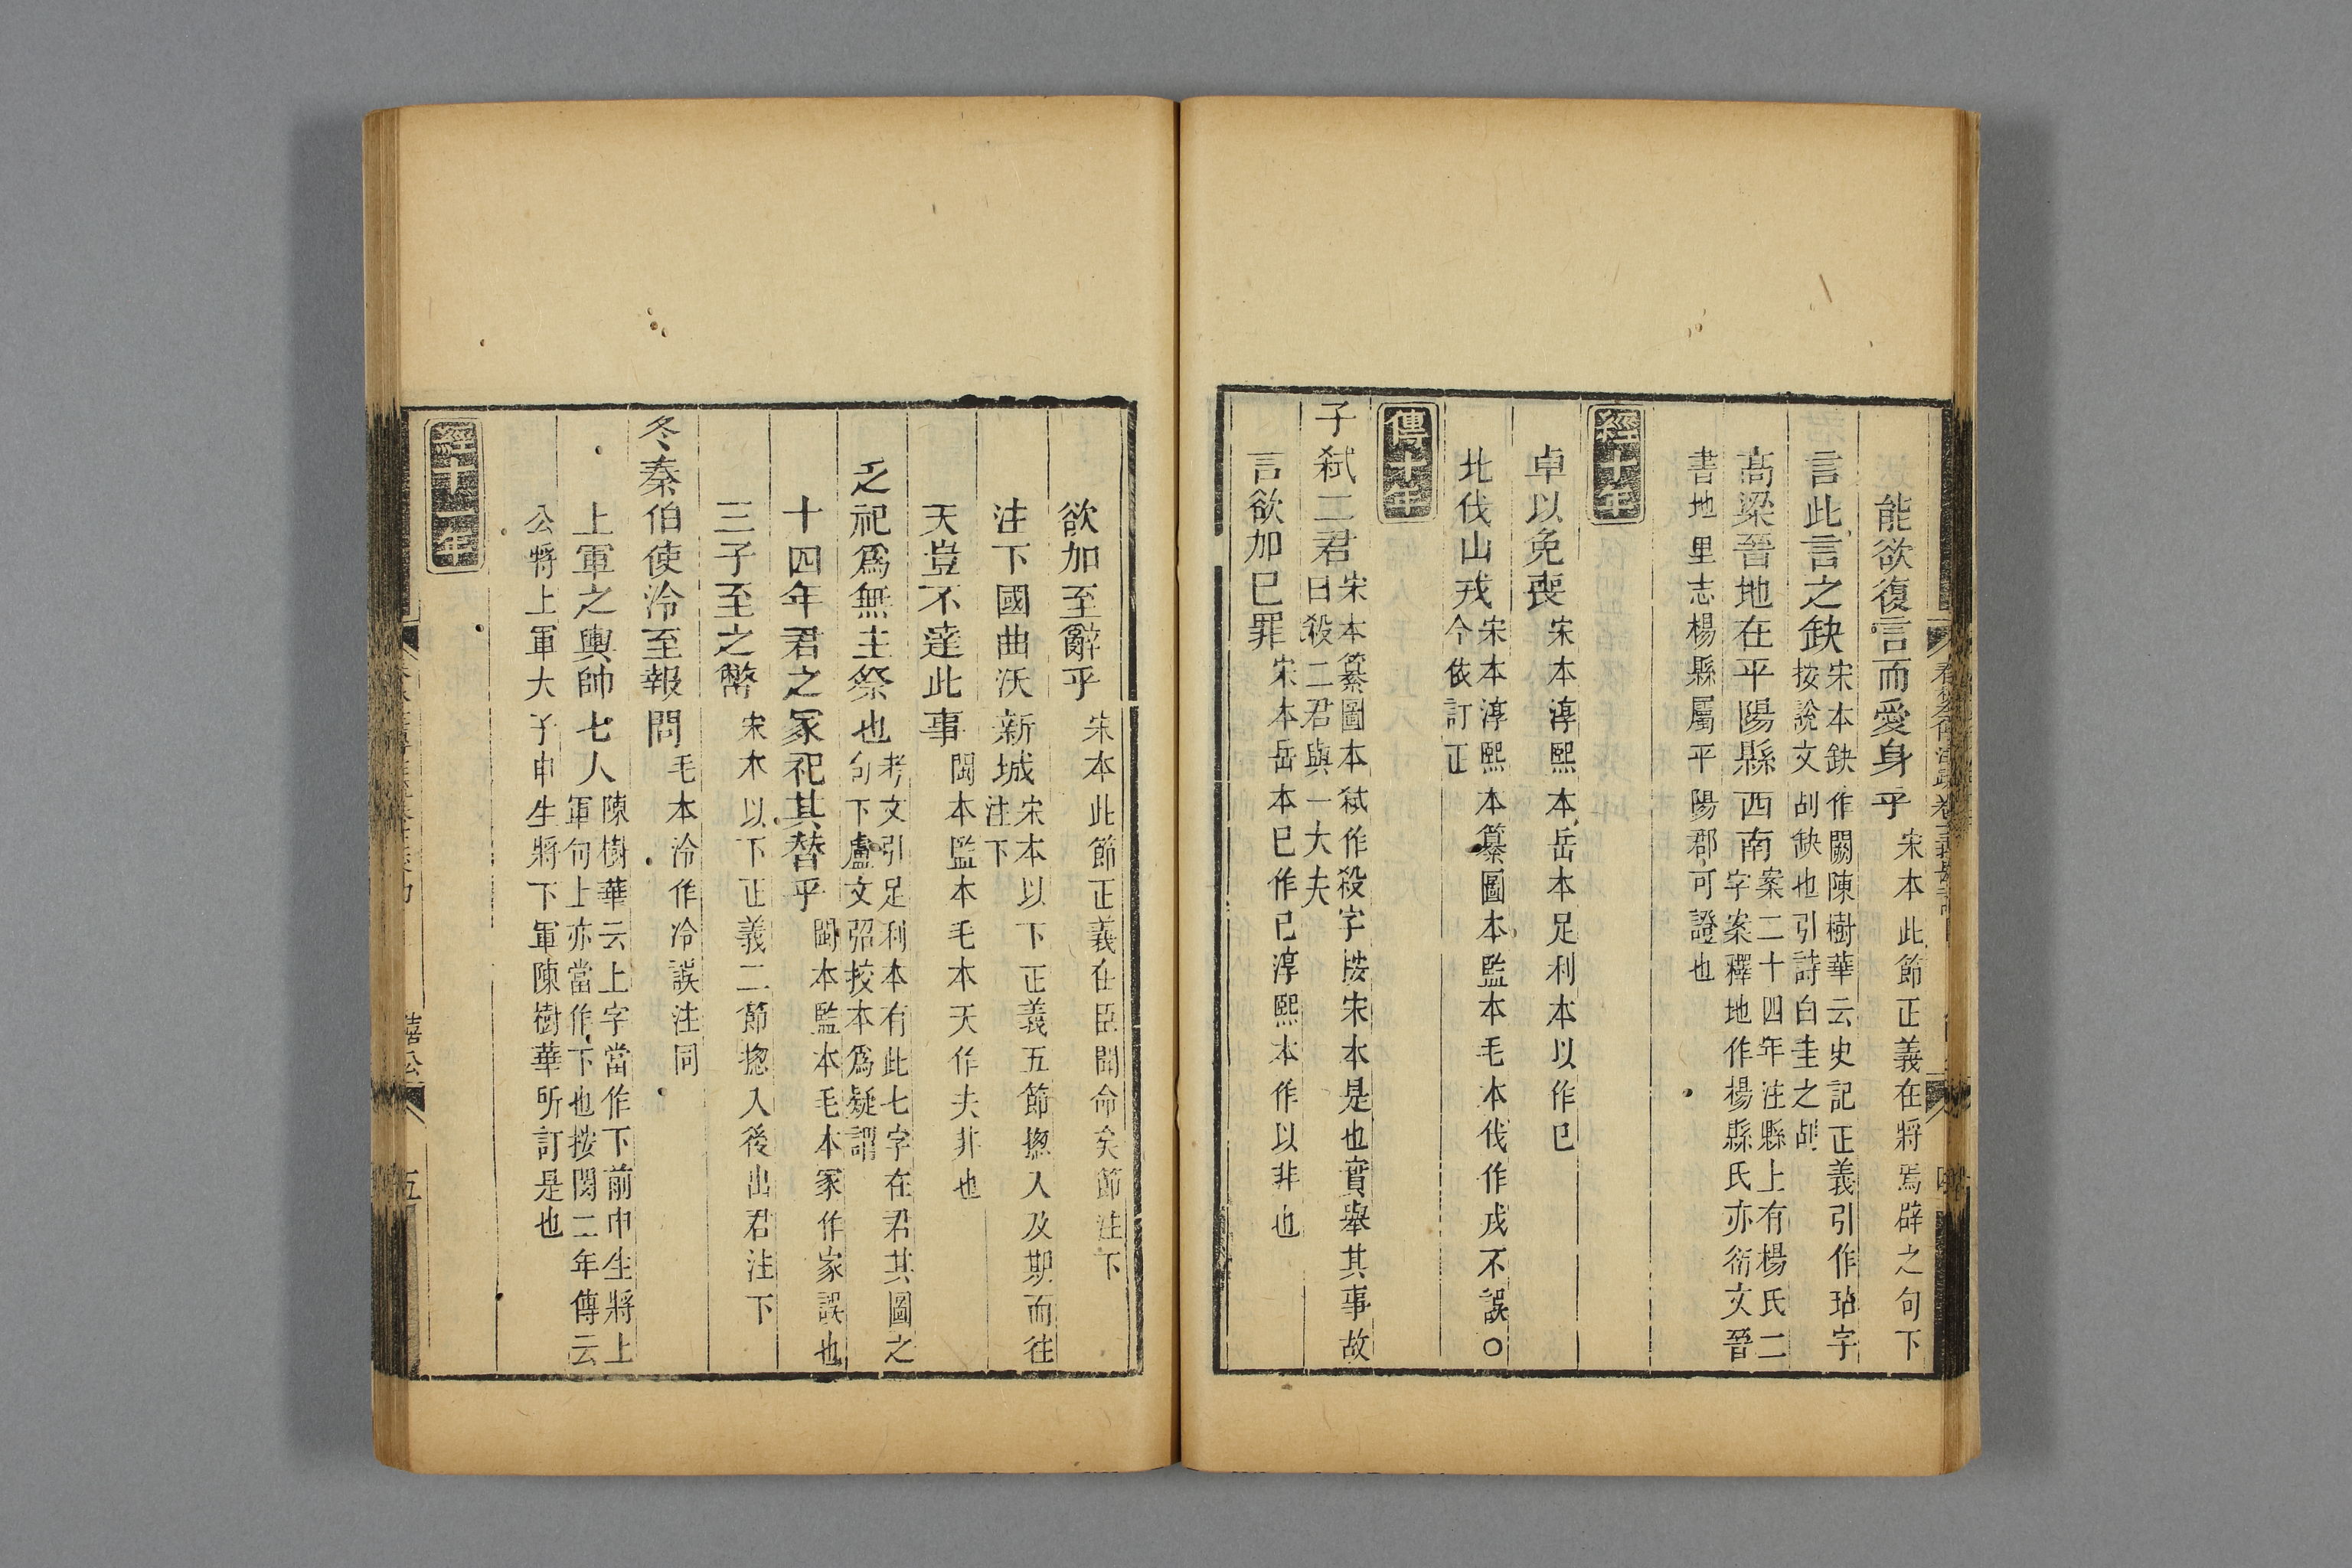 能欲復言而愛身乎宋本此節正義在將焉辟之句下
言此言之缺宋本缺作闕陳樹華云史記正義引作玷字
按說文㓠缺也引詩白圭之㓠
高梁晉地在平陽縣西南案二十四年注縣上有楊氏二
字案釋地作楊縣氏亦衍文晉
書地里志楊縣屬平陽郡可證也
經十年
卓以免喪宋本淳熙本岳本足利本以作已
北伐山戎宋本淳熙本纂圖本監本毛本伐作戎不誤〇
今依訂正
傳十年
子弒二君宋本纂圖本弒作殺字按宋本是也實舉其事故
曰殺二君與一大夫
言欲加已罪宋本岳本已作己淳熙本作以非也
欲加至辭乎宋本此節正義在臣聞命矣節注下
注下國曲沃新城宋本以下正義五節揔入及期而往
注下
天豈不達此事閩本監本毛本天作夫非也
乏祀爲無主祭也考文引足利本有此七字在君其圖之
句下盧文弨挍本爲疑謂
十四年君之冢祀其替乎閩本監本毛本冢作家誤也
三子至之幣宋本以下正義二節揔入後出君注下
冬秦伯使泠至報問毛本泠作冷誤注同
上軍之輿帥七人陳樹華云上字當作下前申生將上
軍句上亦當作下也按閔二年傳云
公將上軍大子申生將下軍陳樹華所訂是也
經十一年
僖公
五